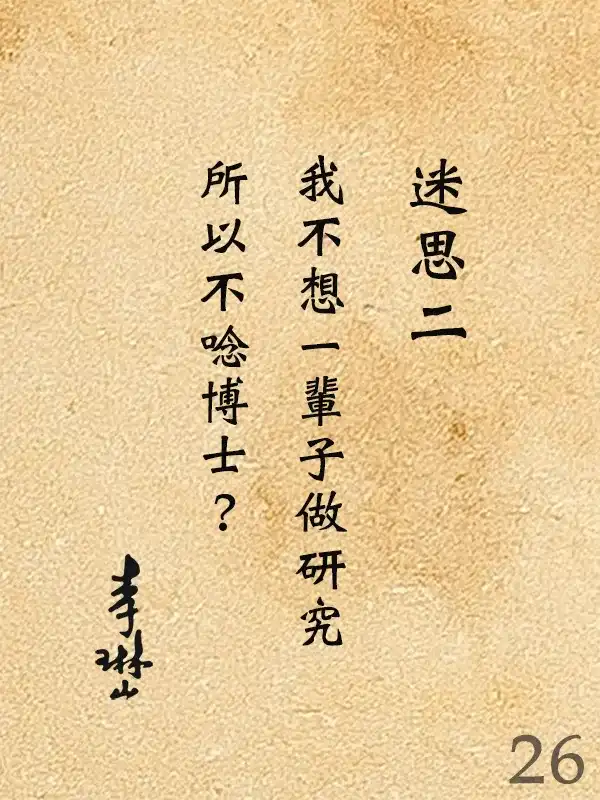 迷思二
我不想一輩子做研究
所以不唸博士？
李琳山
26